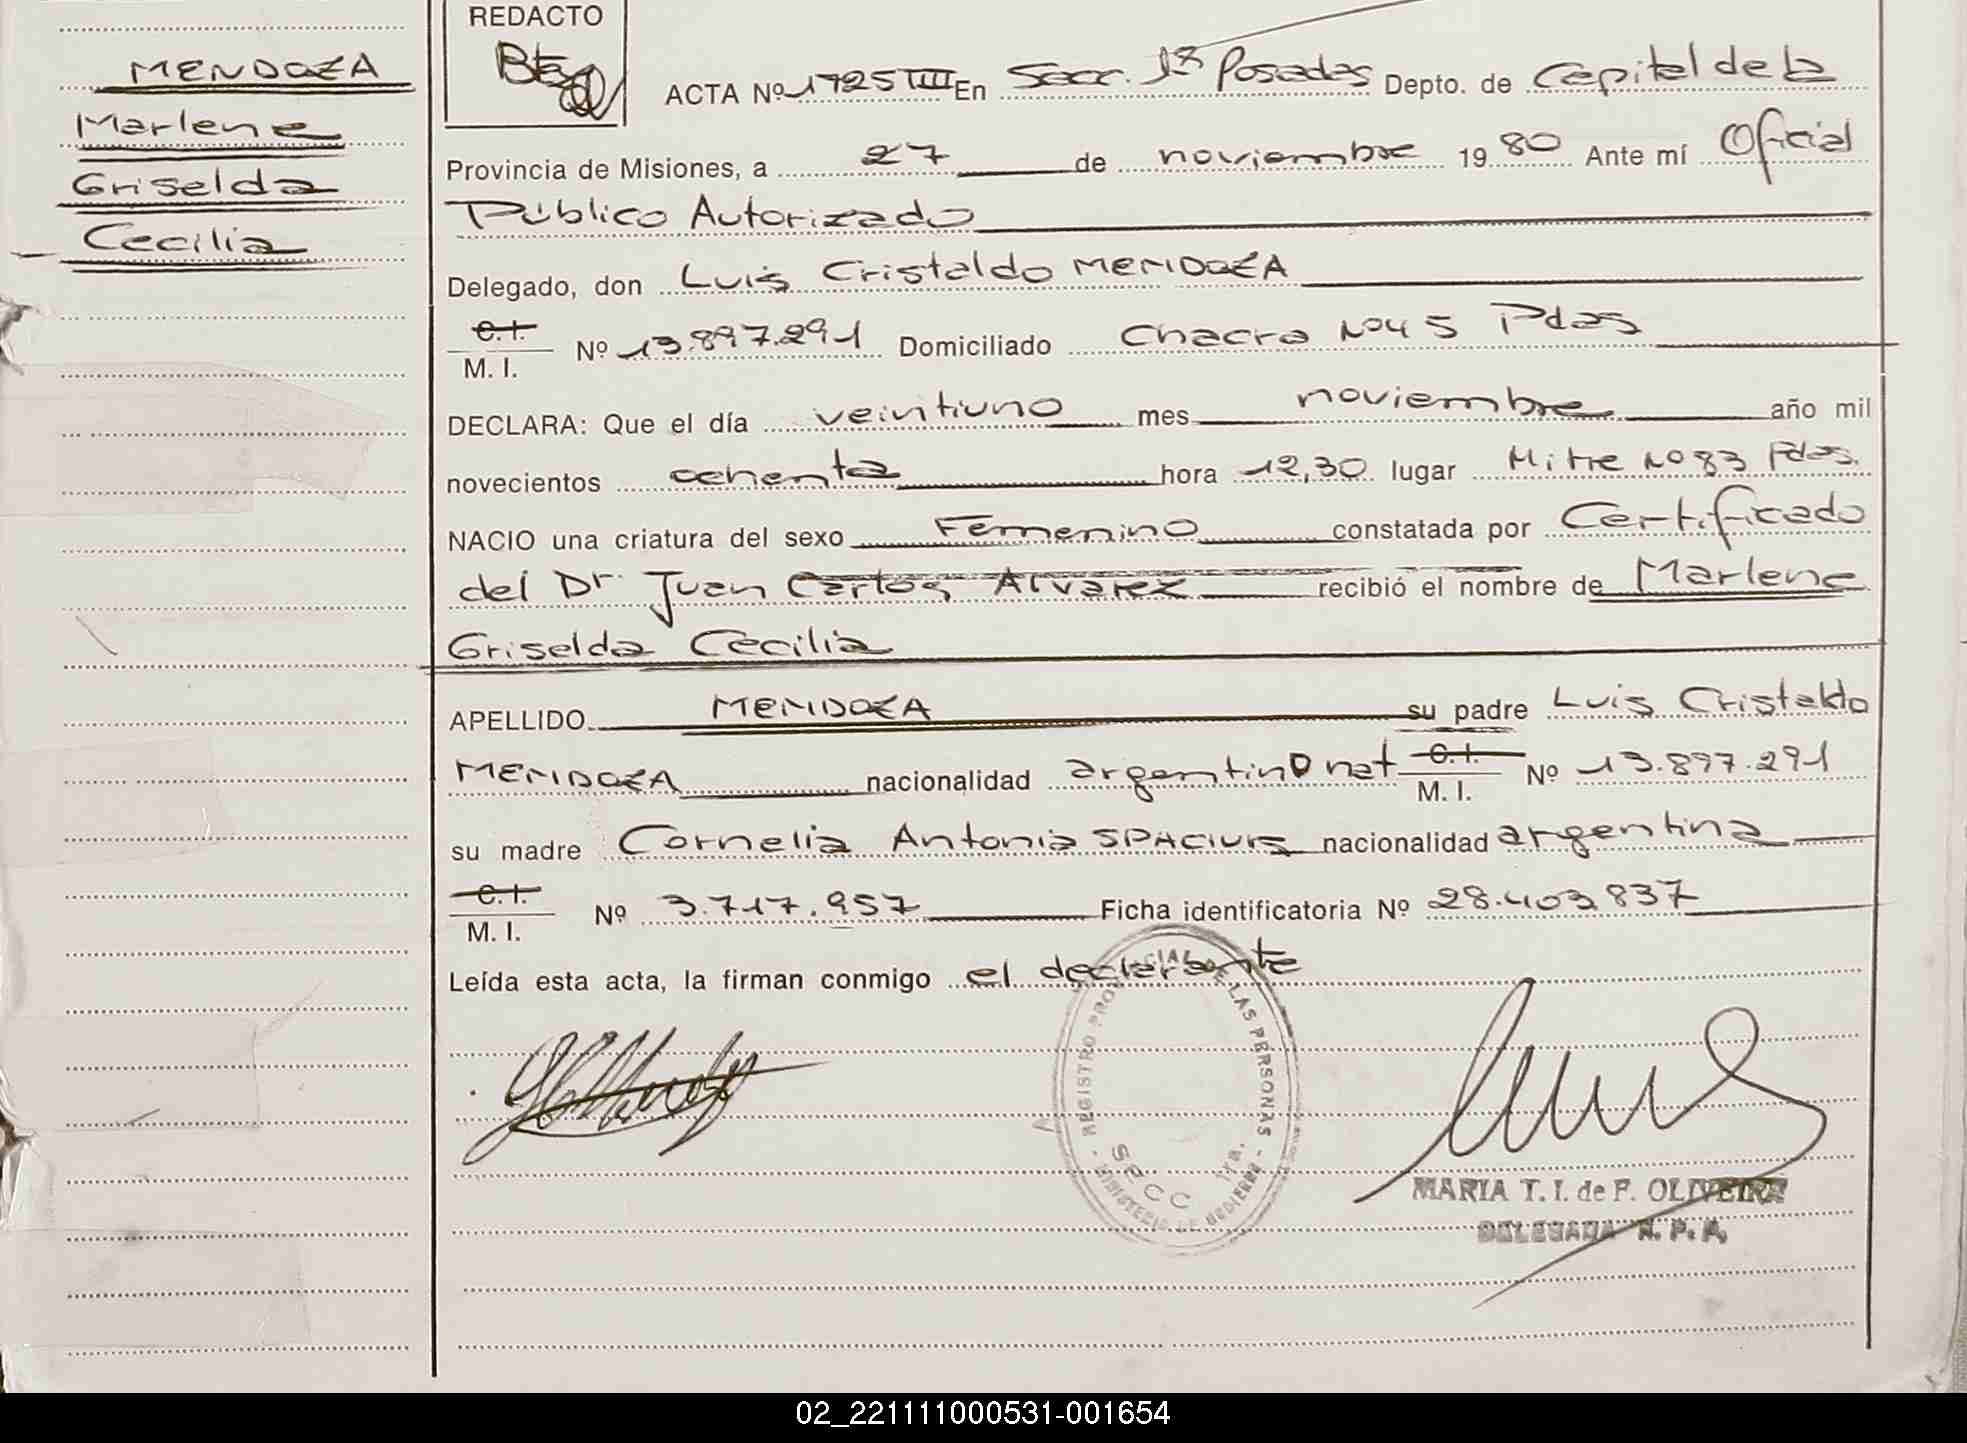 MENDOZA
Marlene
Griselda
Cecilia
REDACTO
ACTA Nº 1725 TIII En Secc. 1ª Posadas Depto. de Capital de la
Provincia de Misiones, a 27 de noviembre 1980 Ante mí Oficial
Público Autorizado
Delegado, don Luis Cristaldo MENDOZA
C.I.
M. I. Nº 13.897.291 Domiciliado Chacra Nº 45 Pdas
DECLARA: Que el día veintiuno mes noviembre año mil
novecientos ochenta hora 12,30 lugar Mitre Nº 83 Pdas.
NACIO una criatura del sexo Femenino constatada por Certificado
del Dr. Juan Carlos Alvarez recibió el nombre de Marlene
Griselda Cecilia
APELLIDO MENDOZA su padre Luis Cristaldo
MENDOZA nacionalidad argentino nat C.I. M. I. Nº 13.897.291
su madre Cornelia Antonia nacionalidad argentina
C.I.
M. I. Nº 3.717.957 Ficha identificatoria Nº 28.403.837
Leída esta acta, la firman conmigo el declarante
REGISTRO PROVINCIAL DE LAS PERSONAS
SECC 1ra.
MINISTERIO DE GOBIERNO
MARIA T. I. de F. OLIVEIRA
DELEGADA R. P. P.
02_221111000531-001654